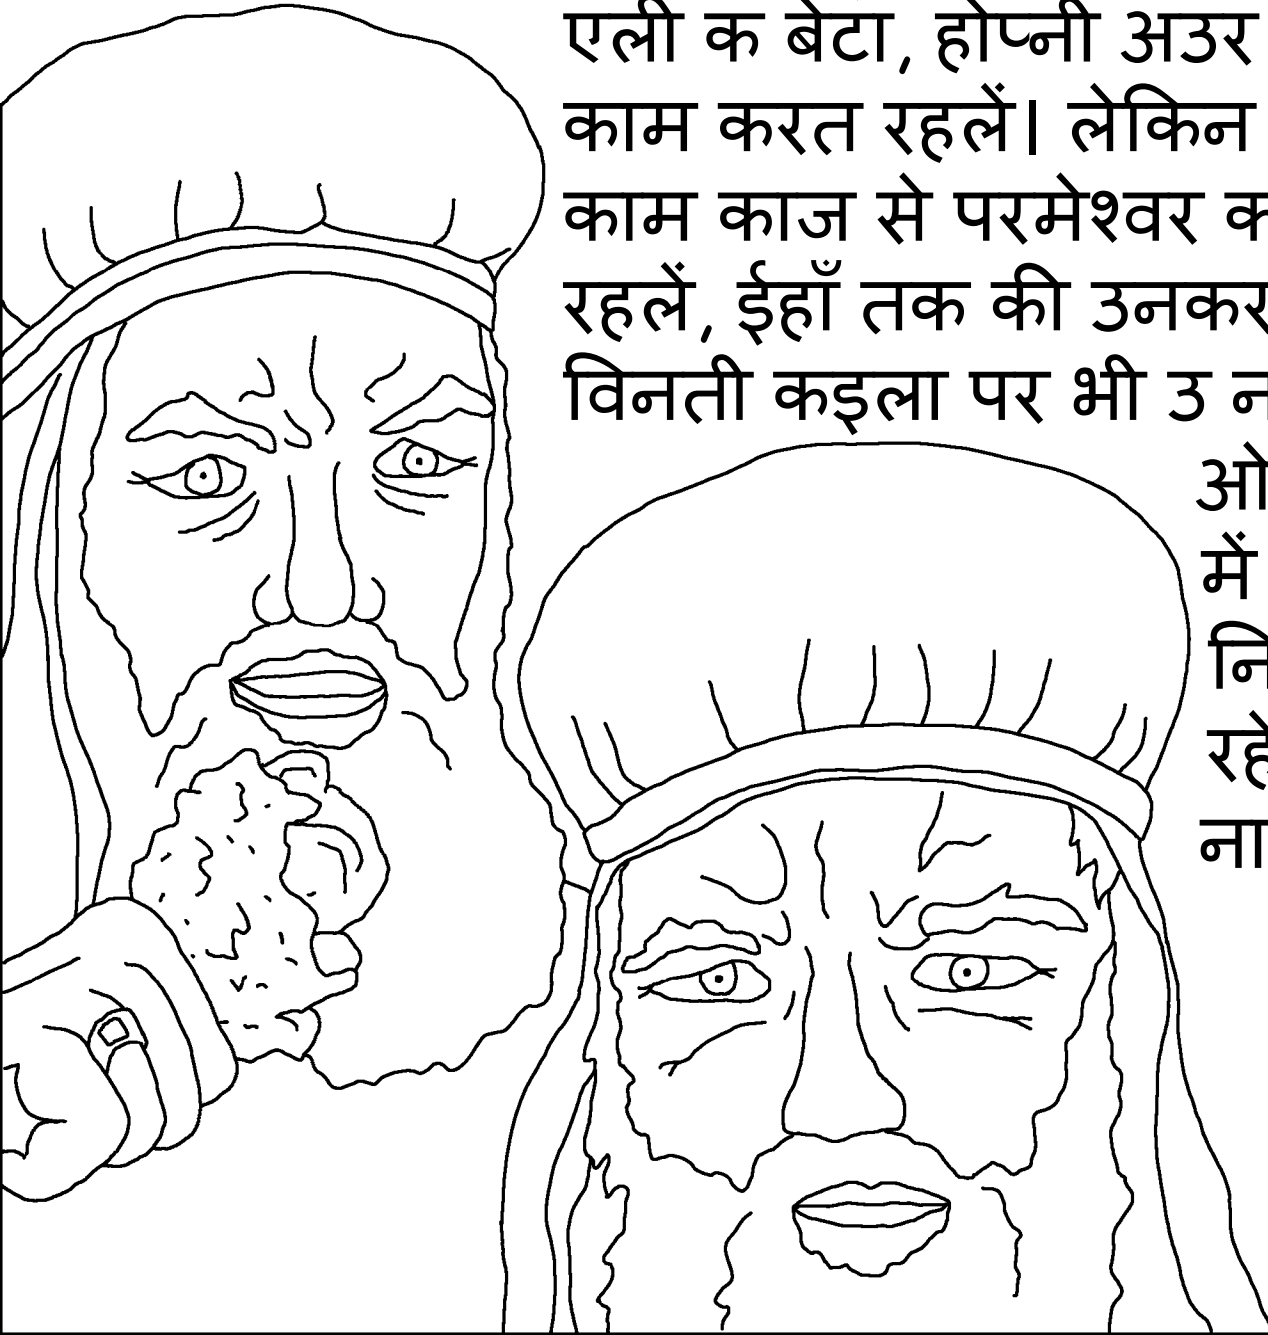 एली क बेटा, होप्नी अउर
काम करत रहलें। लेकिन
काम काज से परमेश्वर
रहलें, ईहाँ तक की उनकर
विनती कइला पर भी उ
में